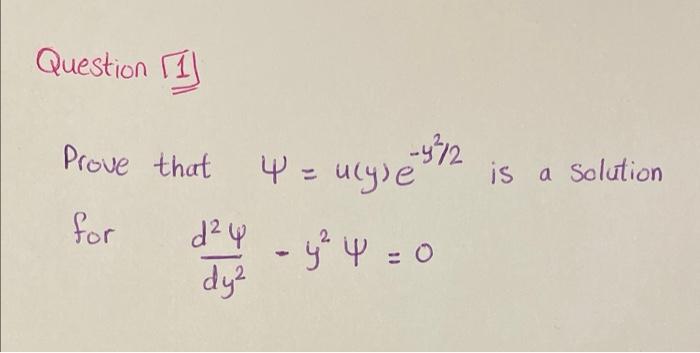 Question [1]
Prove that Ψ = u(y)e^{-y²/2} is a solution
for d²Ψ/dy² - y²Ψ = 0